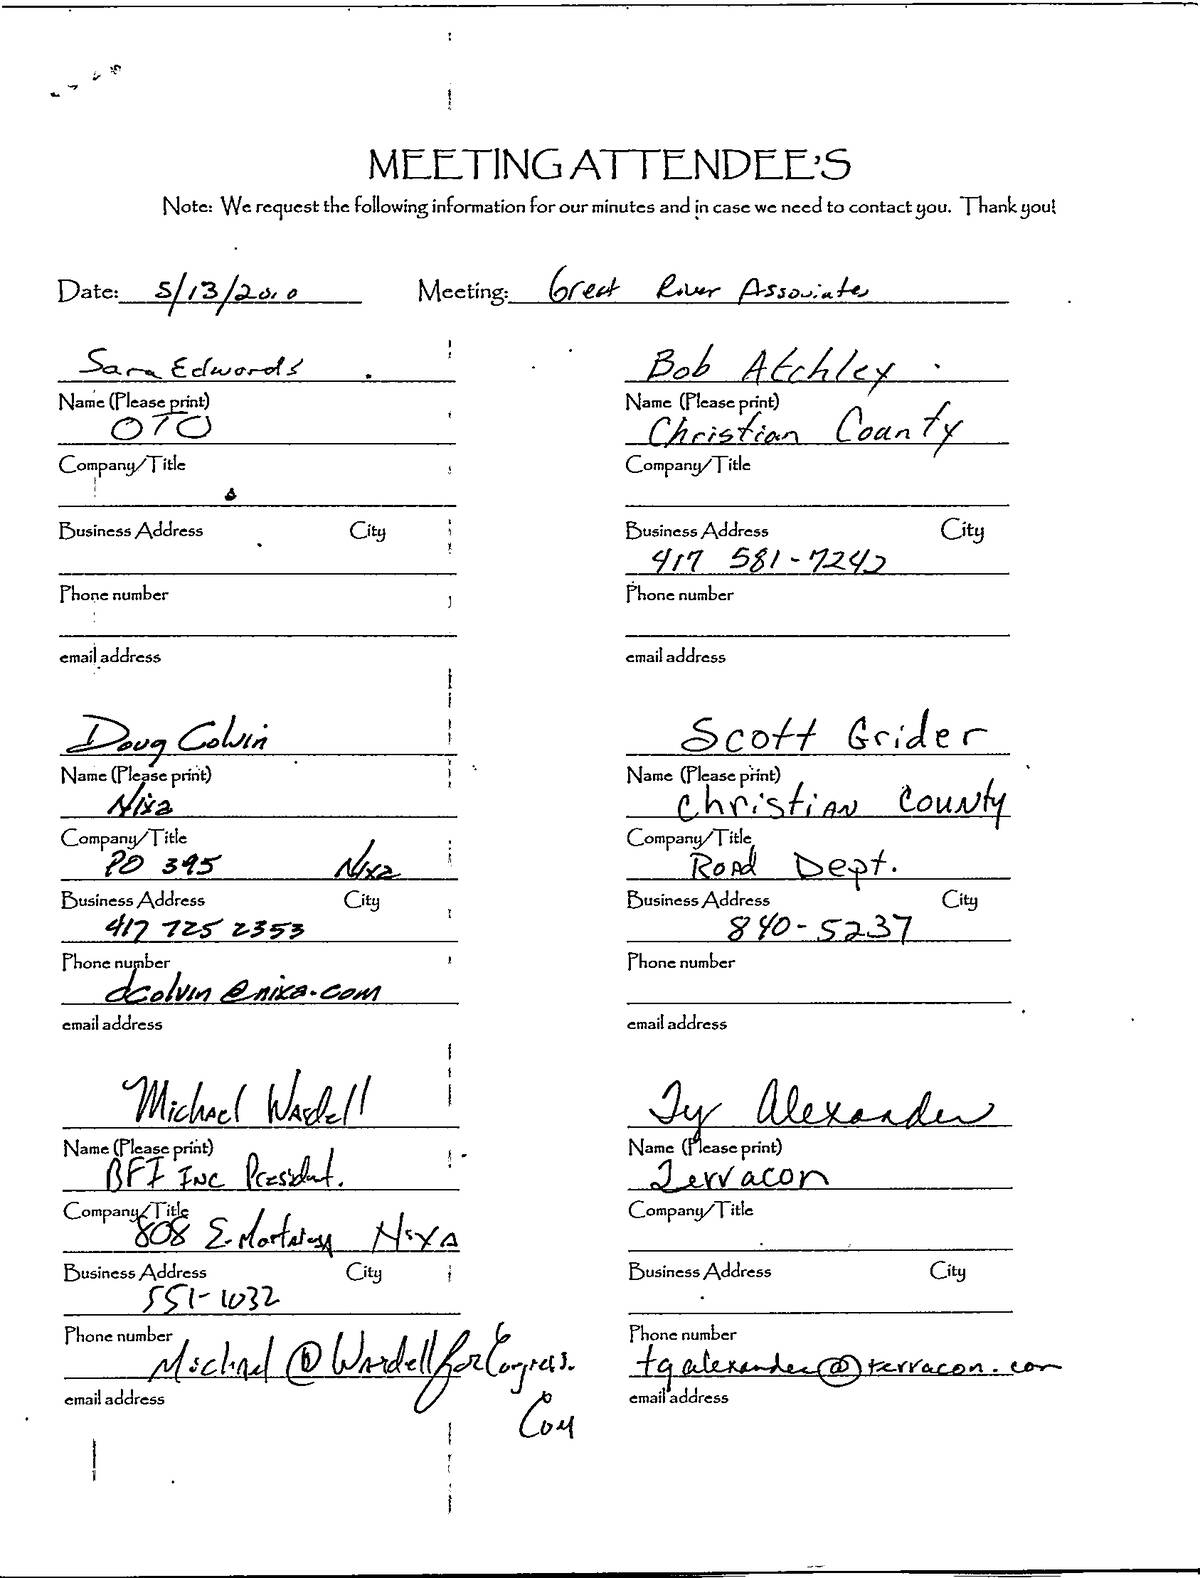 MEETING ATTENDEE'S
Note: We request the following information for our minutes and in case we need to contact you. Thank you!
Date: 5/13/2010 Meeting: Great River Associates
Sara Edwards
Name (Please print)
OTO
Company/Title
Business Address City
Phone number
email address
Bob Atchley
Name (Please print)
Christian County
Company/Title
Business Address City
417 581-7242
Phone number
email address
Doug Colvin
Name (Please print)
Nixa
Company/Title
PO 395 Nixa
Business Address City
417 725 2353
Phone number
dcolvin@nixa.com
email address
Scott Grider
Name (Please print)
Christian County
Company/Title
Road Dept.
Business Address City
840-5237
Phone number
email address
Michael Wardell
Name (Please print)
BFI Inc President.
Company/Title
808 E. Nixa
Business Address City
551-1032
Phone number
Michael@WardellforCongress.
Com
email address
Ty Alexander
Name (Please print)
Terracon
Company/Title
Business Address City
Phone number
tgalexander@terracon.com
email address